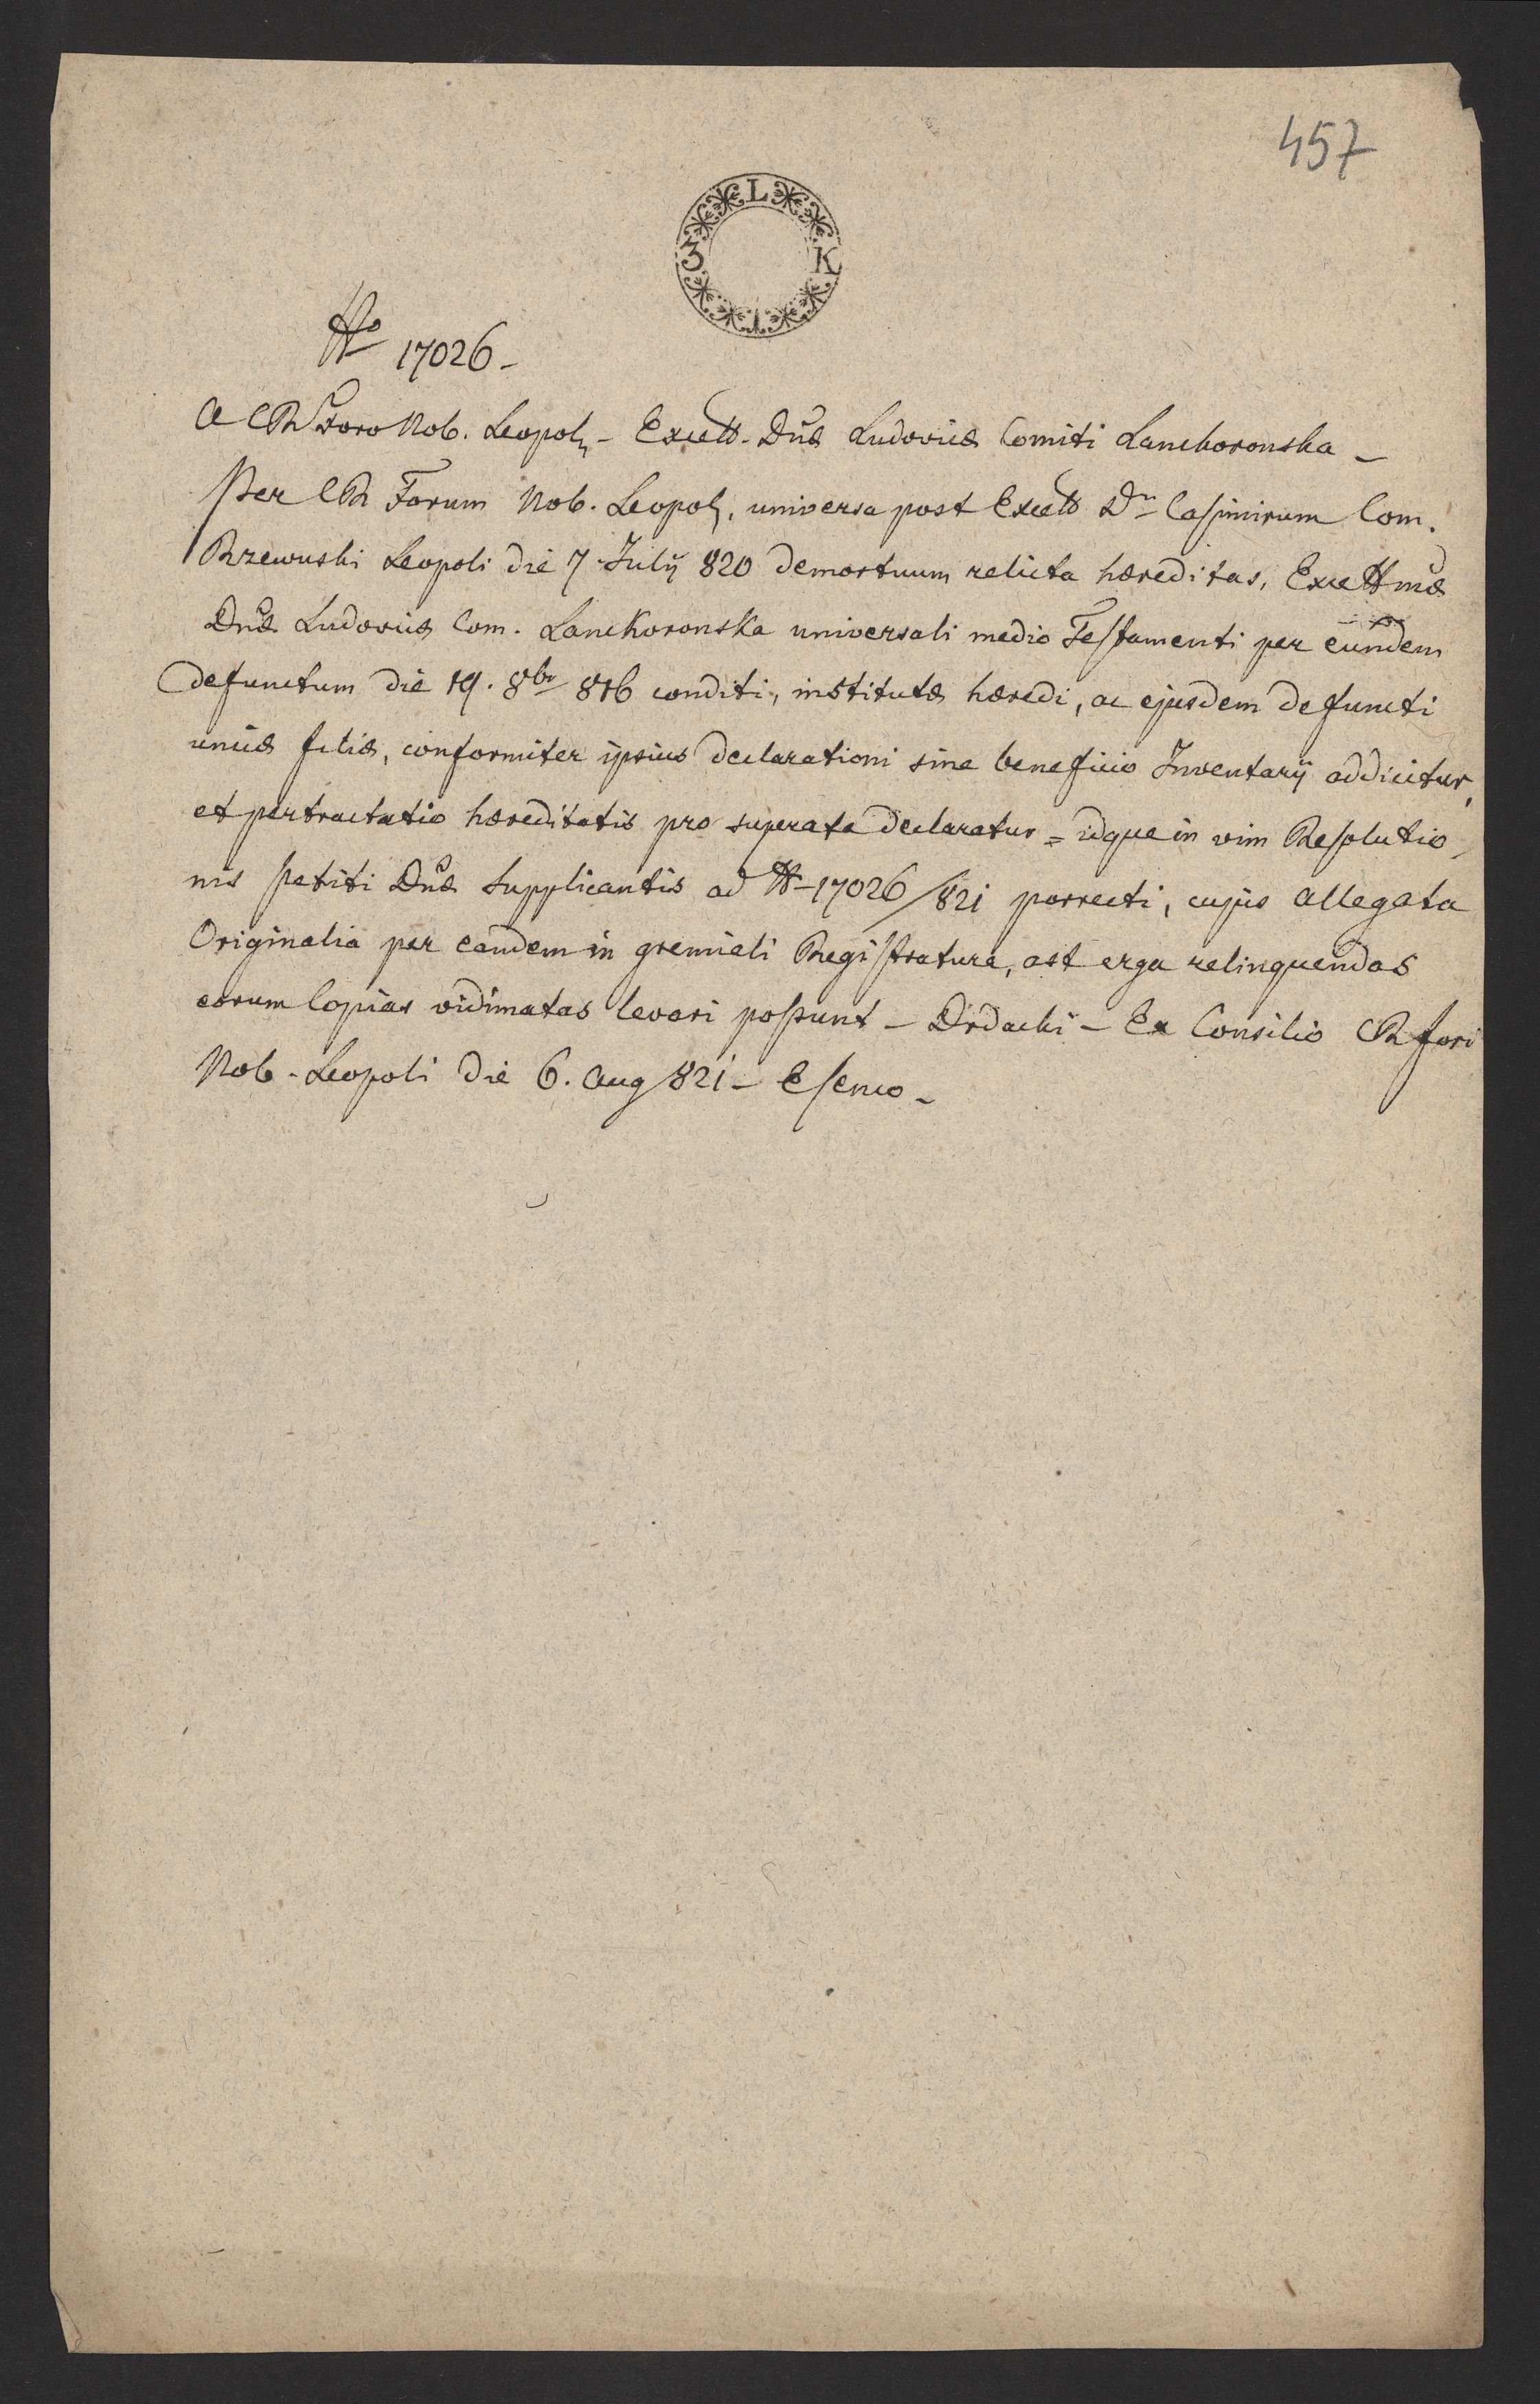 457
L
3 K
No 17026 -
A CR Foro Nob. Leopol, - Excell. Dnæ Ludovicæ Comiti Lanckoronska -
Per CR Forum Nob. Leopol, universa post Excell Dn Casimirum Com.
Rzewuski Leopoli die 7 July 820 demortuum relicta hæreditas, Excellmæ
Dnæ Ludovicæ Com. Lanckoronska universali medio Testamenti per eundem
defunctum die 19. 8br 816 conditi, institutæ hæredi, ac ejusdem defuncti
unicæ filiæ, conformiter ipsius declarationi sine beneficio Inventarÿ addicitur,
et pertractatio hæreditatis pro superata declaratur = idque in vim Resolutio
nis petiti Dnæ Supplicantis ad No 17026/821 porrecti, cujus allegata
Originalia per eandem in gremiali Registratura, ast erga relinquendas
eorum Copias vidimatas levari possunt - Drdacki - Ex Consilio CR fori
Nob. Leopoli die 6. Aug 821 -